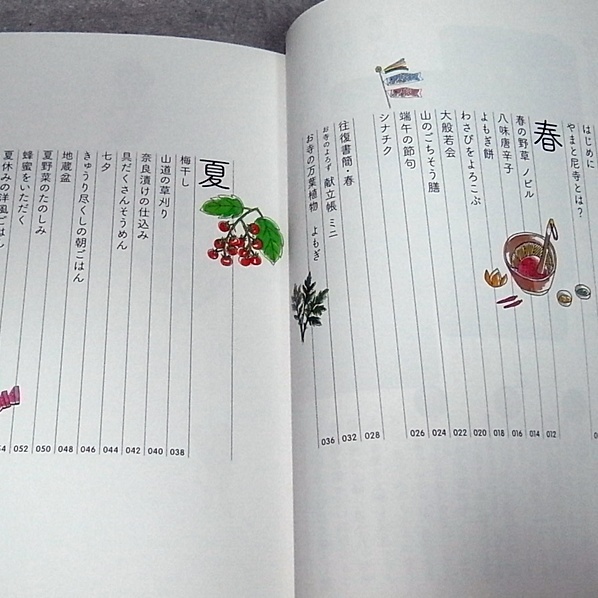 はじめに
やまと尼寺とは?
春
春の野草 ノビル 012
八味唐辛子 014
よもぎ餅 016
わさびをよろこぶ 018
大般若会 020
山のごちそう膳 022
端午の節句 024
シナチク 026
往復書簡・春 028
お寺のよろず 献立帳 ミニ 032
お寺の万葉植物 よもぎ 036
夏
梅干し 038
山道の草刈り 040
奈良漬けの仕込み 042
具だくさんそうめん 044
七夕 046
きゅうり尽くしの朝ごはん 048
地蔵盆 050
夏野菜のたのしみ 052
蜂蜜をいただく 54
夏休みの洋風ごはん